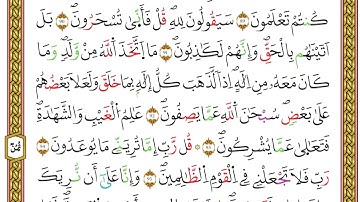 كُنتُمْ تَعْلَمُونَ ۝ سَيَقُولُونَ لِلَّهِ ۚ قُلْ فَأَنَّىٰ تُسْحَرُونَ ۝ بَلْ
أَتَيْنَٰهُم بِالْحَقِّ وَإِنَّهُمْ لَكَٰذِبُونَ ۝ مَا اتَّخَذَ اللَّهُ مِن وَلَدٍ وَمَا
كَانَ مَعَهُۥ مِنْ إِلَٰهٍ ۚ إِذًا لَّذَهَبَ كُلُّ إِلَٰهٍۭ بِمَا خَلَقَ وَلَعَلَا بَعْضُهُمْ
عَلَىٰ بَعْضٍ ۚ سُبْحَٰنَ اللَّهِ عَمَّا يَصِفُونَ ۝ عَٰلِمِ الْغَيْبِ وَالشَّهَٰدَةِ
فَتَعَٰلَىٰ عَمَّا يُشْرِكُونَ ۝ قُل رَّبِّ إِمَّا تُرِيَنِّي مَا يُوعَدُونَ ۝
رَبِّ فَلَا تَجْعَلْنِي فِي الْقَوْمِ الظَّٰلِمِينَ ۝ وَإِنَّا عَلَىٰ أَن نُّرِيَكَ